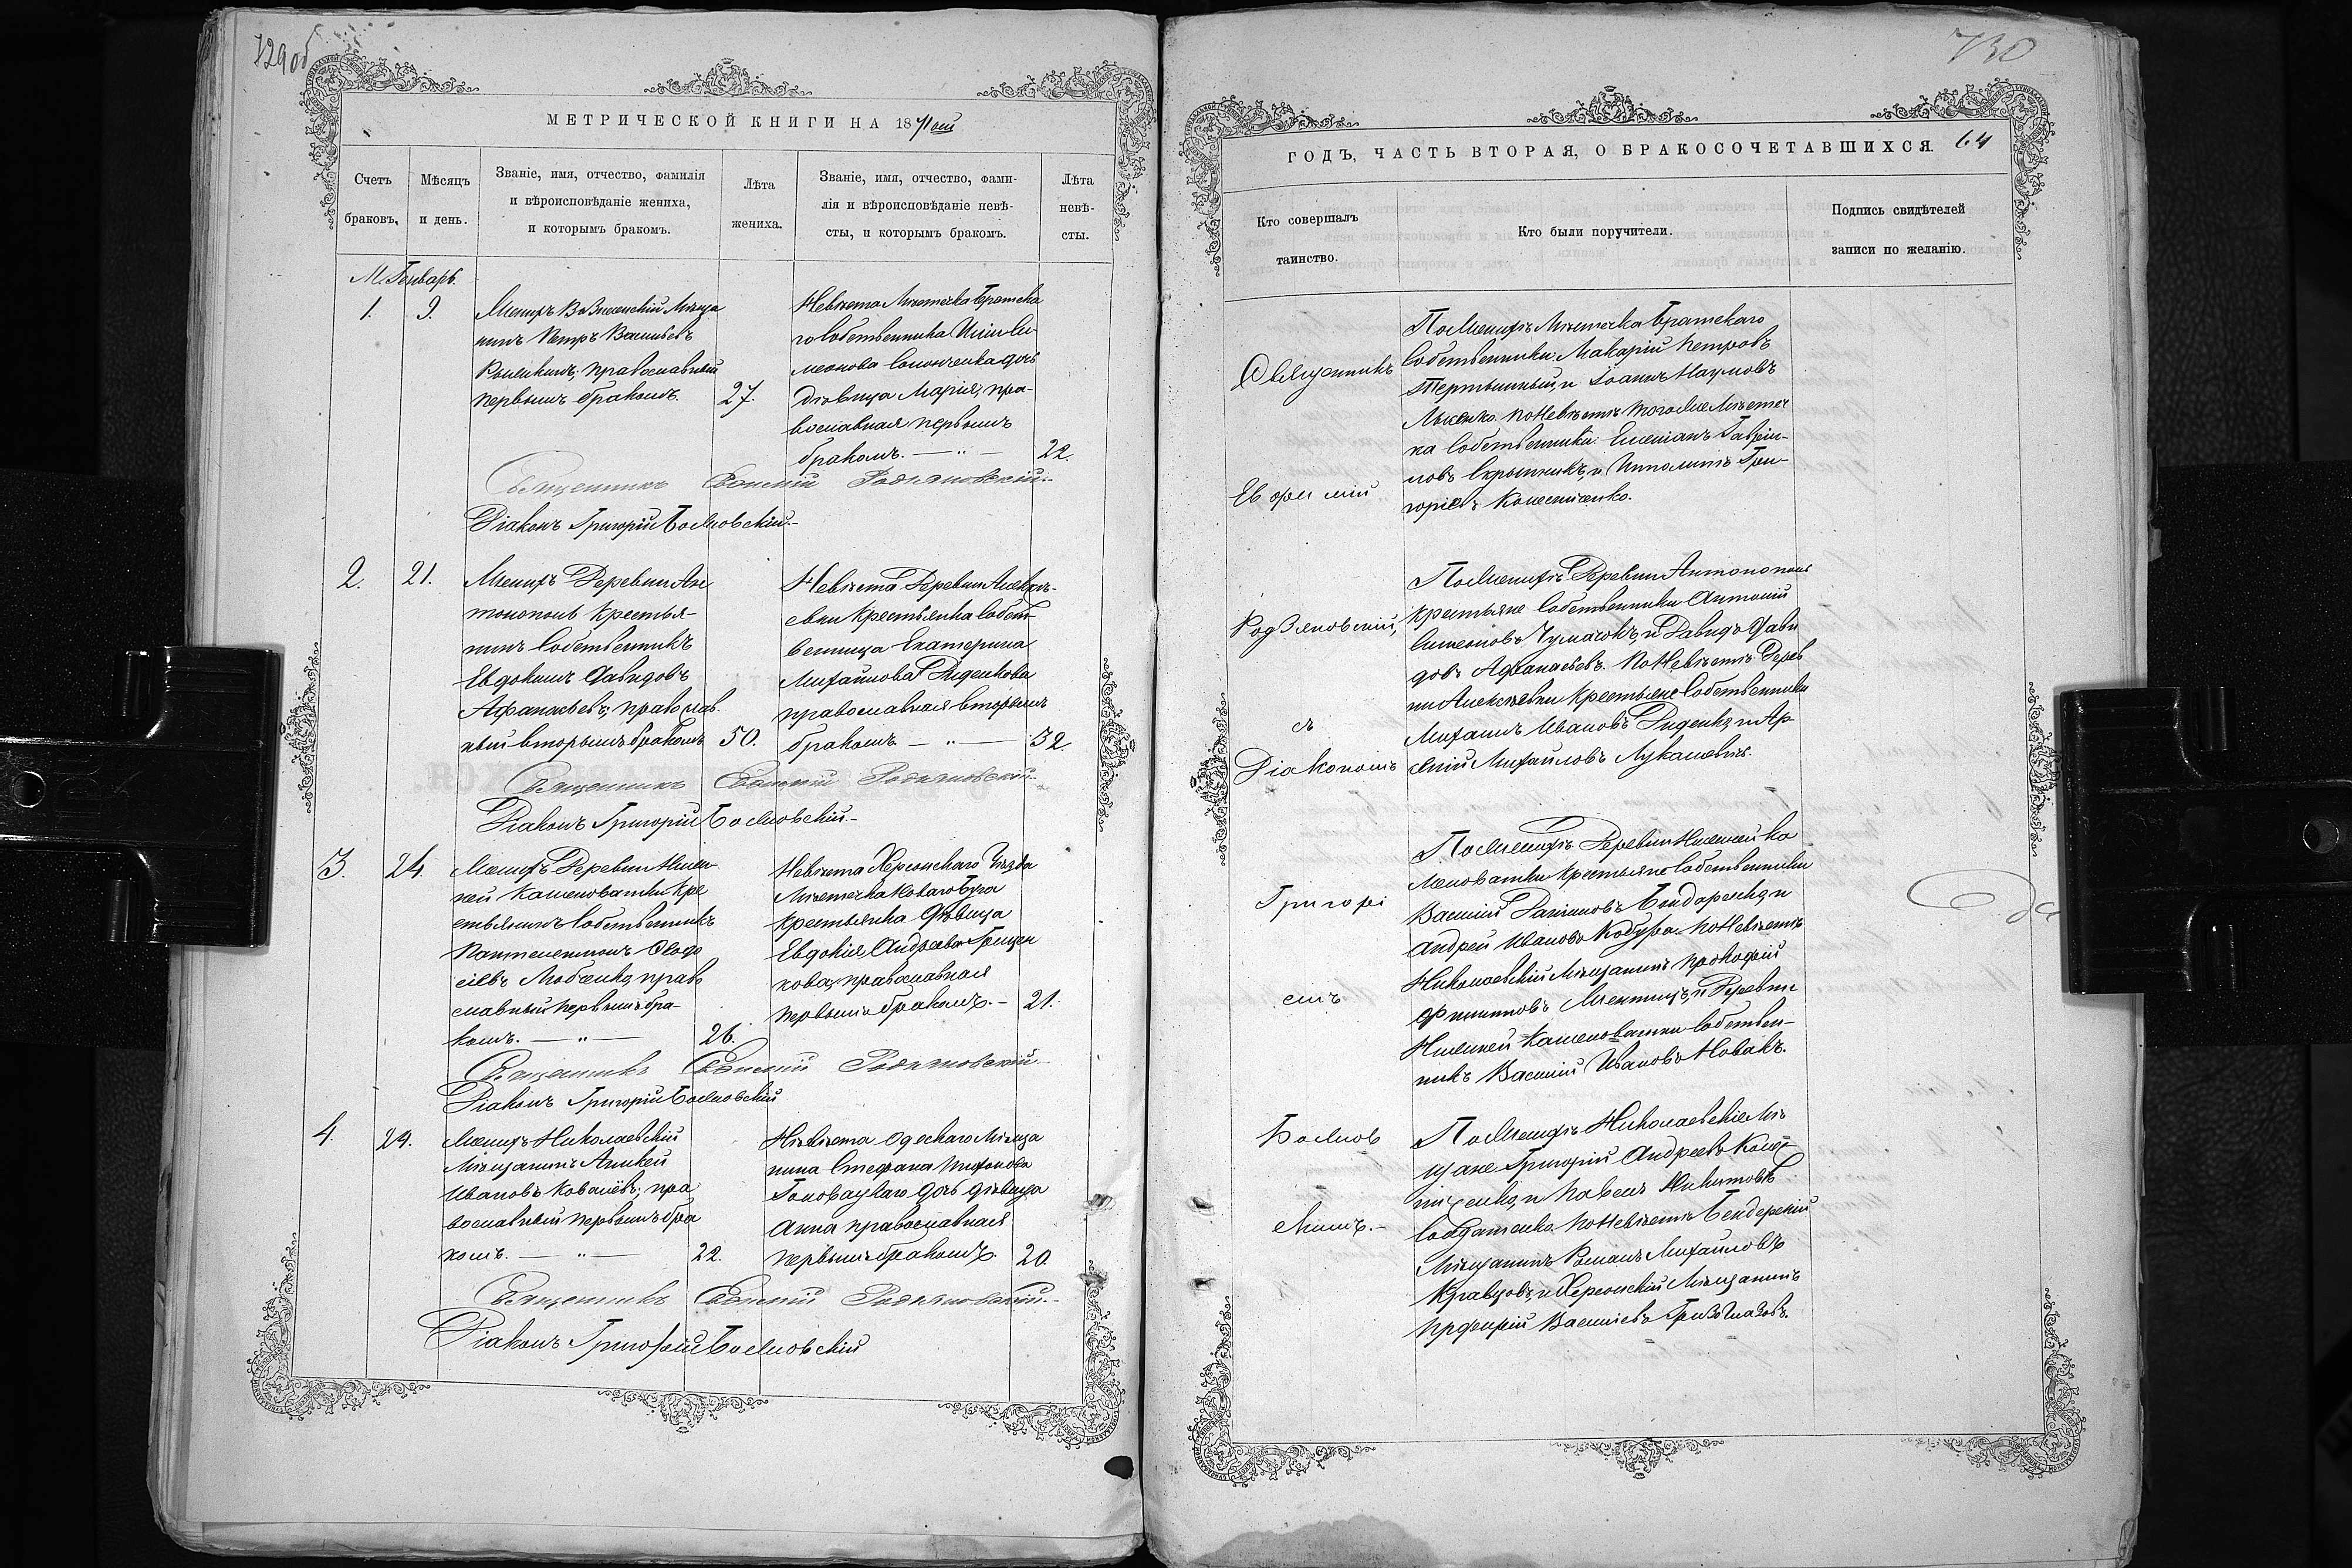 729 об
МЕТРИЧЕСКОЙ КНИГИ НА 1871 ой
Счетъ браковъ.
Мѣсяцъ и день.
Званіе, имя, отчество, фамилія
и вѣроисповѣданіе жениха,
и которымъ бракомъ.
Лѣта жениха.
Званіе, имя, отчество, фами-
лія и вѣроисповѣданіе невѣ-
сты, и которымъ бракомъ.
Лѣта невѣ-
сты.
М. Генварь.
1. 9.
Женихъ Вознесенскій Мѣща
нинъ Петръ Васильевъ
православный
первымъ бракомъ. 27.
Невѣста Мѣстечка Братска
го Собственника Си
меонова дочь
дѣвица Марія, пра-
вославная первымъ
бракомъ. — „ — 22.
Священникъ Евфимій Родзяновскій.
Діаконъ Григорій Божновскій.
2. 21.
Женихъ Деревни Ан
тонополя Крестья-
нинъ Собственникъ
Евдокимъ Давидовъ
Афанасьевъ, православ
ный вторымъ бракомъ 50.
Невѣста Деревни Алексѣ-
евки Крестьянка Собст
венница Екатерина
Михайлова Диденкова
православная вторымъ
бракомъ — „ — 32.
Священникъ Евфимій Родзяновскій.
Діаконъ Григорій Божновскій.
3. 24.
Женихъ Деревни Ниж
ней Каменоватки Кре
стьянинъ Собственникъ
Пантелеимонъ Ѳеодо
сіевъ Любченко, право
славный первымъ бра-
комъ. — „ — 26.
Невѣста Херсонскаго Уѣзда
Мѣстечка Новаго Буга
Крестьянка Дѣвица
Евдокія Андреева Грицен
кова, православная
первымъ бракомъ. — 21.
Священникъ Евфимій Родзяновскій.
Діаконъ Григорій Божновскій
4. 29.
Женихъ Николаевскій
Мѣщанинъ Аникей
Ивановъ Ковалёвъ, пра
вославный первымъ бра
комъ. — „ — 22.
Невѣста Одескаго Мѣща
нина Стефана Тифонова
Головацкаго дочь дѣвица
Анна православная
первымъ бракомъ. 20.
Священникъ Евфимій Родзяновскій.
Діаконъ Григорій Божновскій
730
ГОДЪ, ЧАСТЬ ВТОРАЯ, О БРАКОСОЧЕТАВШИХСЯ. 64
Кто совершалъ
таинство.
Кто были поручители.
Подпись свидѣтелей
записи по желанію.
Священникъ
Евфимій
Родзяновскій,
съ
Діакономъ
Григорі
емъ
Божнов
скимъ.
По Женихѣ Мѣстечка Братскаго
Собственники: Макарій Петровъ
Тертышный, и Іоаннъ Наумовъ
Лысенко. По Невѣстѣ того же Мѣстеч
ка Собственники: Емеліанъ Гаврии-
ловъ Скрынникъ, и Ипполитъ Гри-
горіевъ Колесниченко.
По Женихѣ Деревни Антонополя
Крестьяне Собственники Антоній
Симеоновъ Чумачокъ, и Давидъ Дави
довъ Афанасьевъ. По Невѣстѣ Дерев
ни Алексѣевки Крестьяне Собственники
Михаилъ Ивановъ Диденко, и Ар
семій Михайловъ Лукашевичъ.
По Женихѣ Деревни Нижней Ка
меноватки Крестьяне Собственники
Василій Бондаренко, и
Андрей Ивановъ Кобура. По Невѣстѣ
Николаевскій Мѣщанинъ Прокофій
Филиповъ и Деревни
Нижней Каменоватки Собствен-
никъ Василій Ивановъ Новакъ.
По Женихѣ Николаевскіе Мѣ
щане Григорій Андреевъ Колес
ниченко, и Павелъ Никитовъ
Солдатенко. По Невѣстѣ Бендерскій
Мѣщанинъ Романъ Михайловъ
Кравцовъ, и Херсонскій Мѣщанинъ
Порфирій Василіевъ